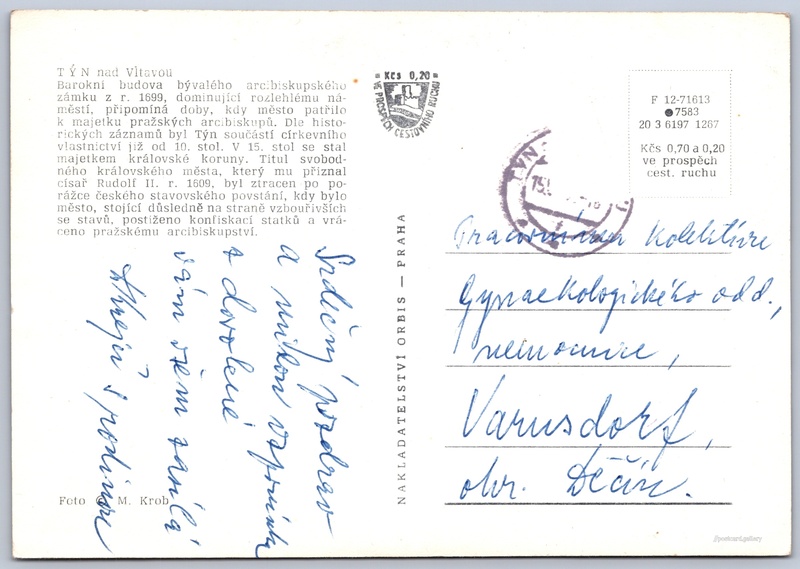 TÝN nad Vltavou
Barokní budova bývalého arcibiskupského
zámku z r. 1699, dominující rozlehlému ná-
městí, připomíná doby, kdy město patřilo
k majetku pražských arcibiskupů. Dle histo-
rických záznamů byl Týn součástí církevního
vlastnictví již od 10. stol. V 15. stol se stal
majetkem královské koruny. Titul svobod-
ného královského města, který mu přiznal
císař Rudolf II. r. 1609, byl ztracen po po-
rážce českého stavovského povstání, kdy bylo
město, stojící důsledně na straně vzbouřivších
se stavů, postiženo konfiskací statků a vrá-
ceno pražskému arcibiskupství.
Srdečný pozdrav
a milou vzpomínku
z dovolené
vám všem zasílá
s rodinou
Foto © M. Krob
NAKLADATELSTVÍ ORBIS — PRAHA
= Kčs 0,20 =
VE PROSPĚCH CESTOVNÍHO RUCHU
F 12-71613
7583
20 3 6197 1267
Kčs 0,70 a 0,20
ve prospěch
cest. ruchu
TÝN
Kolektiv
Gynaekologického odd.,
nemocnice,
Varnsdorf,
okr. Děčín.
postcard.gallery